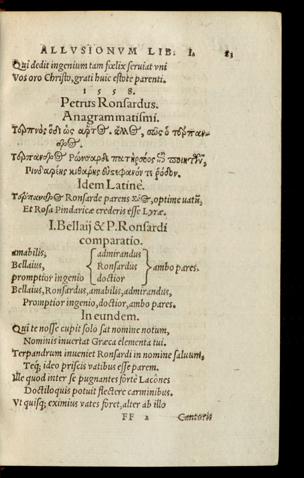 ALLVSIONVM LIB. I. 83
Qui dedit ingenium tam fœlix seruiat vni
Vos oro Christo, grati huic estote parenti.
1558.
Petrus Ronsardus.
Anagrammatismi.
Idem Latinè.
Ronsarde parens optime vatũ,
Et Rosa Pindaricæ crederis esse Lyræ.
I. Bellaij & P. Ronsardi
comparatio.
amabilis, admirandus
Bellaius, Ronsardus ambo pares.
promptior ingenio doctior
Bellaius, Ronsardus, amabilis, admirandus,
Promptior ingenio, doctior, ambo pares.
In eundem.
Qui te nosse cupit solo sat nomine notum,
Nominis inuertat Græca elementa tui.
Terpandrum inueniet Ronsardi in nomine saluum,
Teq; ideo priscis vatibus esse parem.
Ille quod inter se pugnantes fortè Lacones
Doctiloquis potuit flectere carminibus.
Vt quisq; eximius vates foret, alter ab illo
FF 2 Cantoris